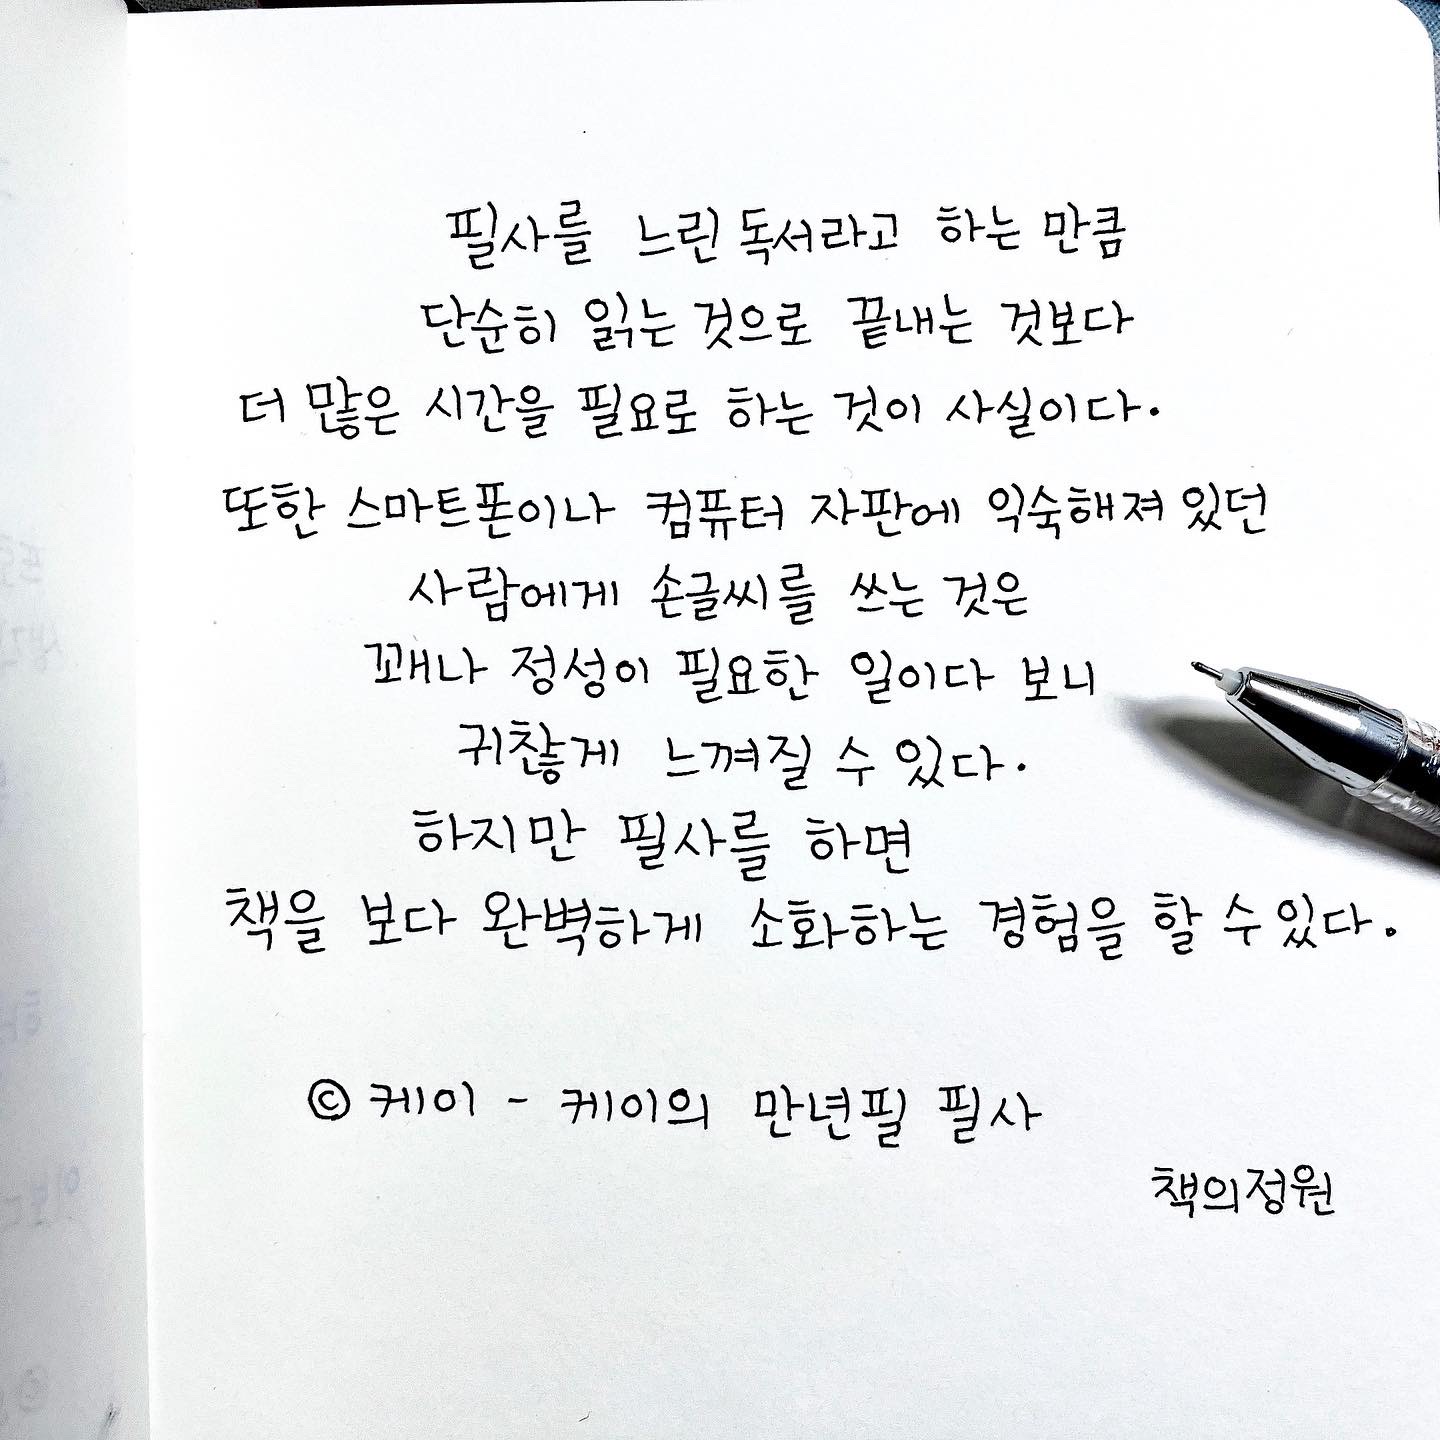 필사를 느린 독서라고 하는 만큼
단순히 읽는 것으로 끝내는 것보다
더 많은 시간을 필요로 하는 것이 사실이다.
또한 스마트폰이나 컴퓨터 자판에 익숙해져 있던
사람에게 손글씨를 쓰는 것은
꽤나 정성이 필요한 일이다 보니
귀찮게 느껴질 수 있다.
하지만 필사를 하면
책을 보다 완벽하게 소화하는 경험을 할 수 있다.
© 케이 - 케이의 만년필 필사
책의정원